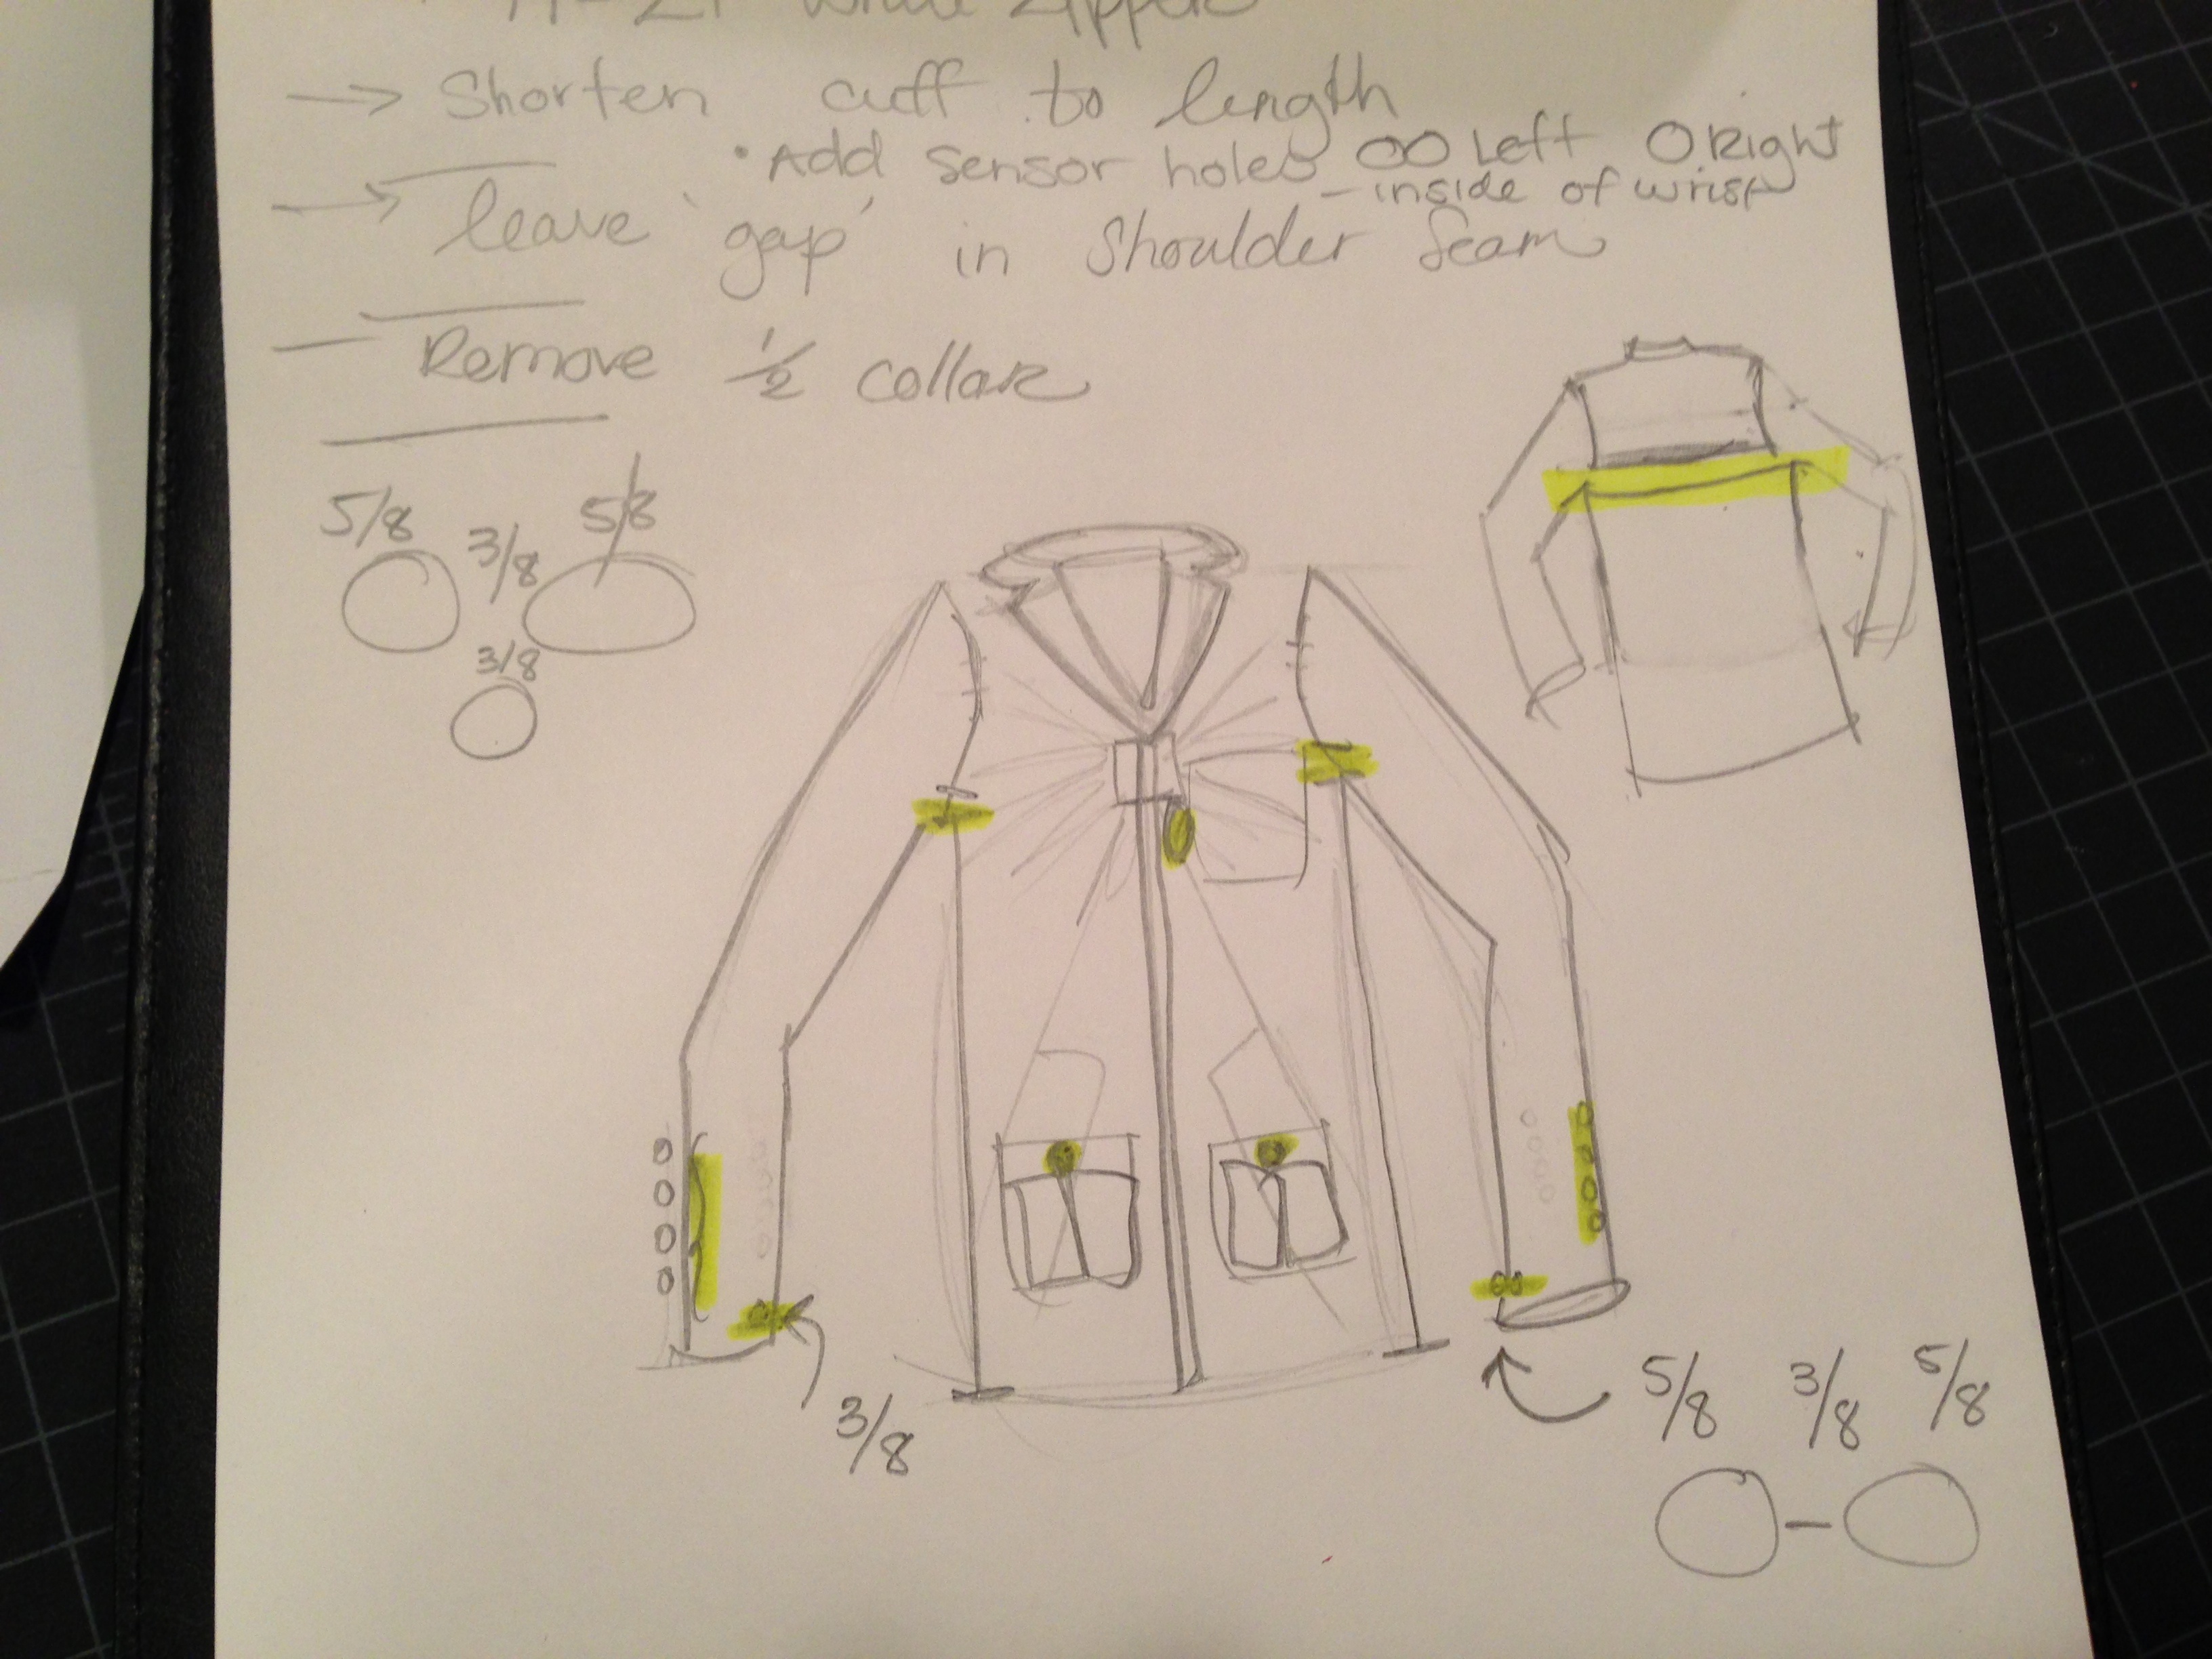 → Shorten cuff to length
• Add sensor holes OO Left O Right
- inside of wrist
→ leave 'gap' in Shoulder Seam
— Remove 1/2 collar
5/8 3/8 5/8
3/8
3/8
5/8 3/8 5/8